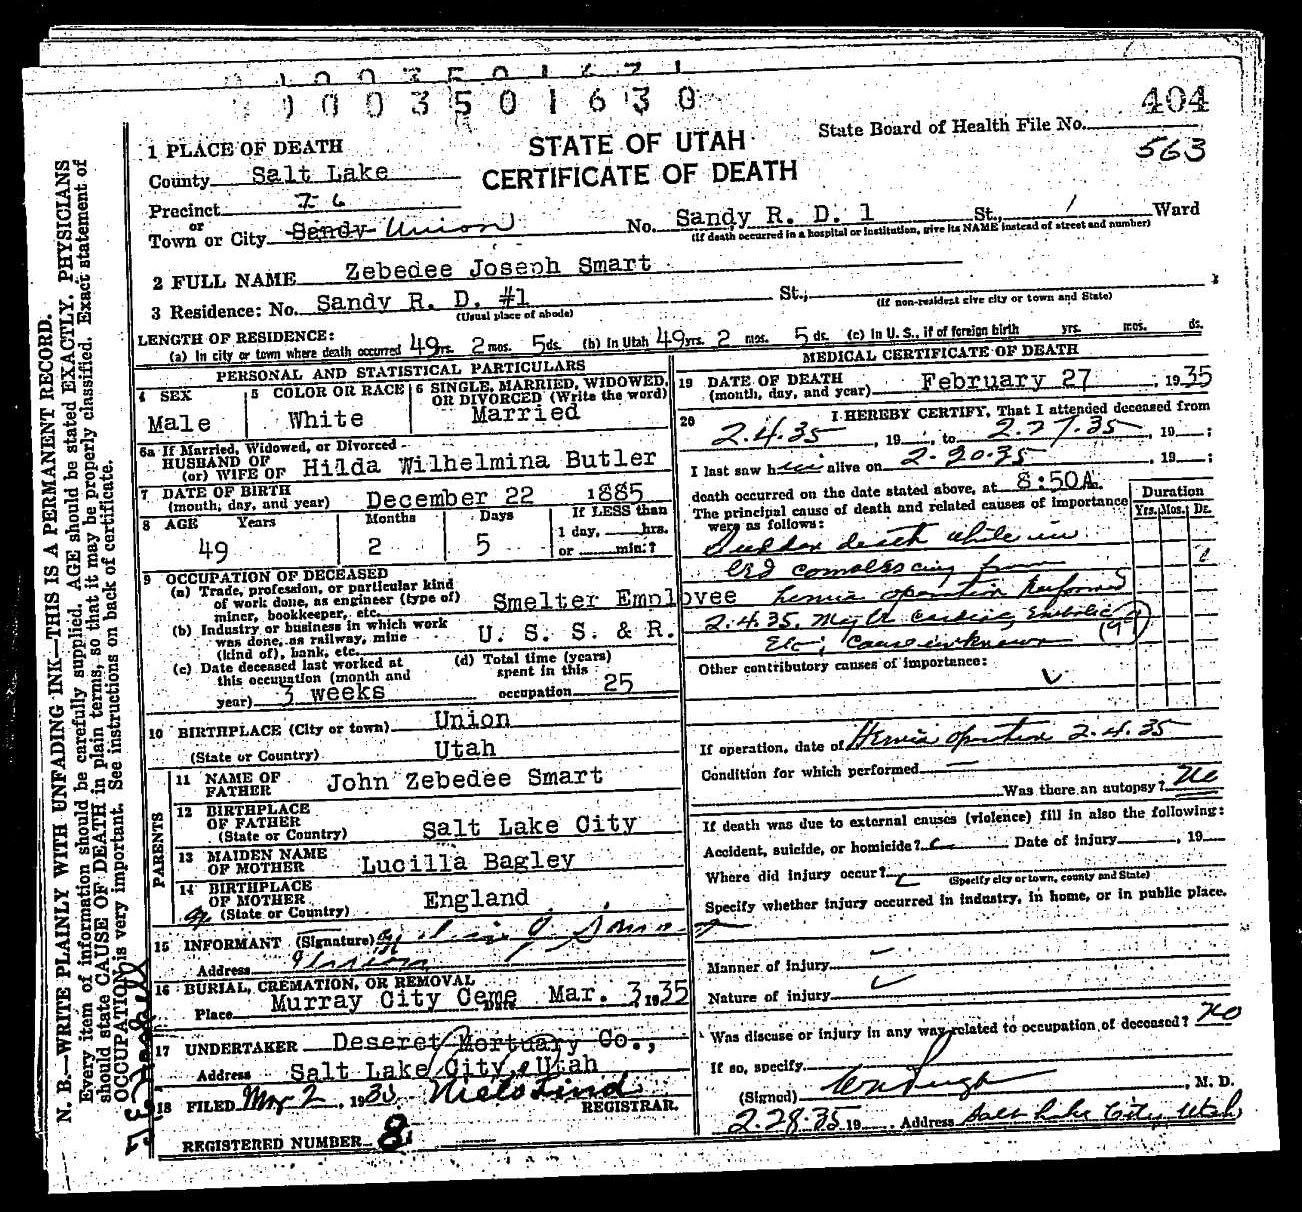 0003501630
404
STATE OF UTAH
CERTIFICATE OF DEATH
State Board of Health File No.
563
1 PLACE OF DEATH
County Salt Lake
Precinct 76
or
Town or City Sandy Union No. Sandy R. D. 1 St., 1 Ward
(If death occurred in a hospital or institution, give its NAME instead of street and number)
2 FULL NAME Zebedee Joseph Smart
3 Residence: No. Sandy R. D. #1 St.,
(Usual place of abode) (If non-resident give city or town and State)
LENGTH OF RESIDENCE:
(a) In city or town where death occurred 49 yrs. 2 mos. 5 ds. (b) In Utah 49 yrs. 2 mos. 5 ds. (c) In U. S., if of foreign birth yrs. mos. ds.
PERSONAL AND STATISTICAL PARTICULARS
4 SEX Male
5 COLOR OR RACE White
6 SINGLE, MARRIED, WIDOWED, OR DIVORCED (Write the word) Married
6a If Married, Widowed, or Divorced
HUSBAND OF
(or) WIFE OF Hilda Wilhelmina Butler
7 DATE OF BIRTH
(month, day, and year) December 22 1885
8 AGE Years 49 Months 2 Days 5 If LESS than
1 day, hrs.
or min.?
9 OCCUPATION OF DECEASED
(a) Trade, profession, or particular kind
of work done, as engineer (type of)
miner, bookkeeper, etc. Smelter Employee
(b) Industry or business in which work
was done, as railway, mine
(kind of), bank, etc. U. S. S. & R.
(c) Date deceased last worked at
this occupation (month and
year) 3 weeks
(d) Total time (years)
spent in this
occupation 25
10 BIRTHPLACE (City or town) Union
(State or Country) Utah
PARENTS
11 NAME OF
FATHER John Zebedee Smart
12 BIRTHPLACE
OF FATHER
(State or Country) Salt Lake City
13 MAIDEN NAME
OF MOTHER Lucilla Bagley
14 BIRTHPLACE
OF MOTHER
(State or Country) England
15 INFORMANT (Signature)
Address
16 BURIAL, CREMATION, OR REMOVAL
Place Murray City Ceme Date Mar. 3, 1935
17 UNDERTAKER Deseret Mortuary Co.,
Address Salt Lake City, Utah
18 FILED Mar 2, 1935 Niels Lind
REGISTRAR.
REGISTERED NUMBER 8
MEDICAL CERTIFICATE OF DEATH
19 DATE OF DEATH
(month, day, and year) February 27, 1935
20 I HEREBY CERTIFY, That I attended deceased from
2.4.35, 19 , to 2.27.35, 19 ;
I last saw him alive on 2.20.35, 19 ;
death occurred on the date stated above, at 8:50A.
The principal cause of death and related causes of importance
were as follows:
Duration
Yrs. Mos. Ds.
Sudden death while in
from
hernia operation performed
2.4.35.
Etc; Cause unknown
Other contributory causes of importance:
If operation, date of Hernia operation 2.4.35
Condition for which performed
Was there an autopsy? No
If death was due to external causes (violence) fill in also the following:
Accident, suicide, or homicide? Date of injury , 19
Where did injury occur?
(Specify city or town, county and State)
Specify whether injury occurred in industry, in home, or in public place.
Manner of injury
Nature of injury
Was disease or injury in any way related to occupation of deceased? No
If so, specify
(Signed) , M. D.
2.28.35 19 , Address Salt Lake City, Utah
N. B.—WRITE PLAINLY WITH UNFADING INK—THIS IS A PERMANENT RECORD.
Every item of information should be carefully supplied. AGE should be stated EXACTLY. PHYSICIANS
should state CAUSE OF DEATH in plain terms, so that it may be properly classified. Exact statement of
OCCUPATION is very important. See instructions on back of certificate.